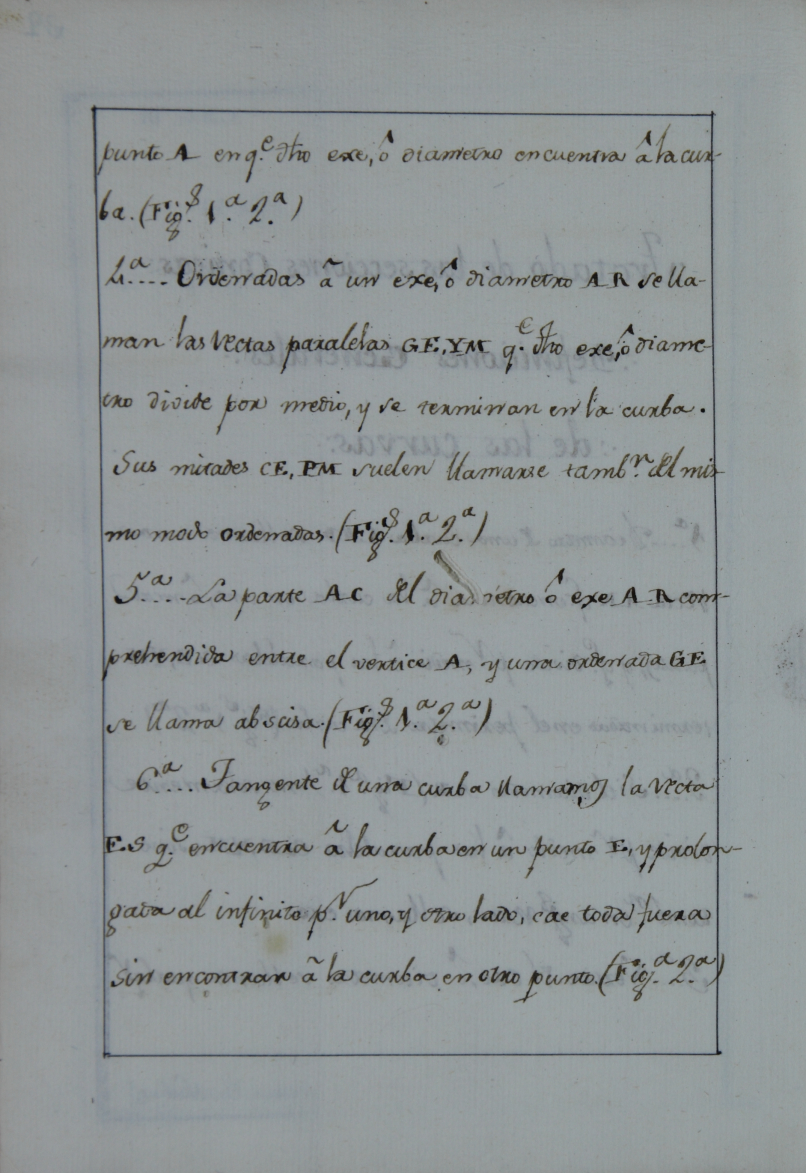 punto A en q.e dho exe, ô diametro encuentra â la cur-
ba. (Fig.s 1.a 2.a)
4.a.... Ordenadas â un exe, ô diametro A R se lla-
man las rectas paralelas GE, YM q.e dho exe, ô diame-
tro divide por medio, y se terminan en la curba.
Sus mitades CE, PM suelen llamarse tamb.n del mis-
mo modo ordenadas. (Fig.s 1.a 2.a)
5.a.... La parte AC del diametro ô exe A R com-
prehendida entre el vertice A, y una ordenada GE
se llama abscisa. (Fig.s 1.a 2.a)
6.a.... Tangente de una curba llamamos la recta
E S q.e encuentra â la curba en un punto E, y prolon-
gada al infinito p.r uno, y otro lado, cae toda fuera
sin encontrar â la curba en otro punto. (Fig.a 2.a)